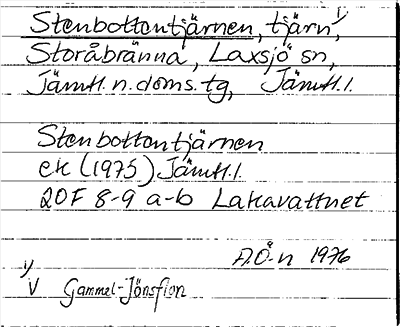 Stenbottentjärnen, tjärn,¹⁾
Storåbränna, Laxsjö sn,
Jämtl. n. doms. tg, Jämtl. l.
Stenbottentjärnen
ek (1975) Jämtl. l.
20F 8-9 a-b Lakavattnet
A.Ö-n 1976
1)
V Gammel-Jönsflon